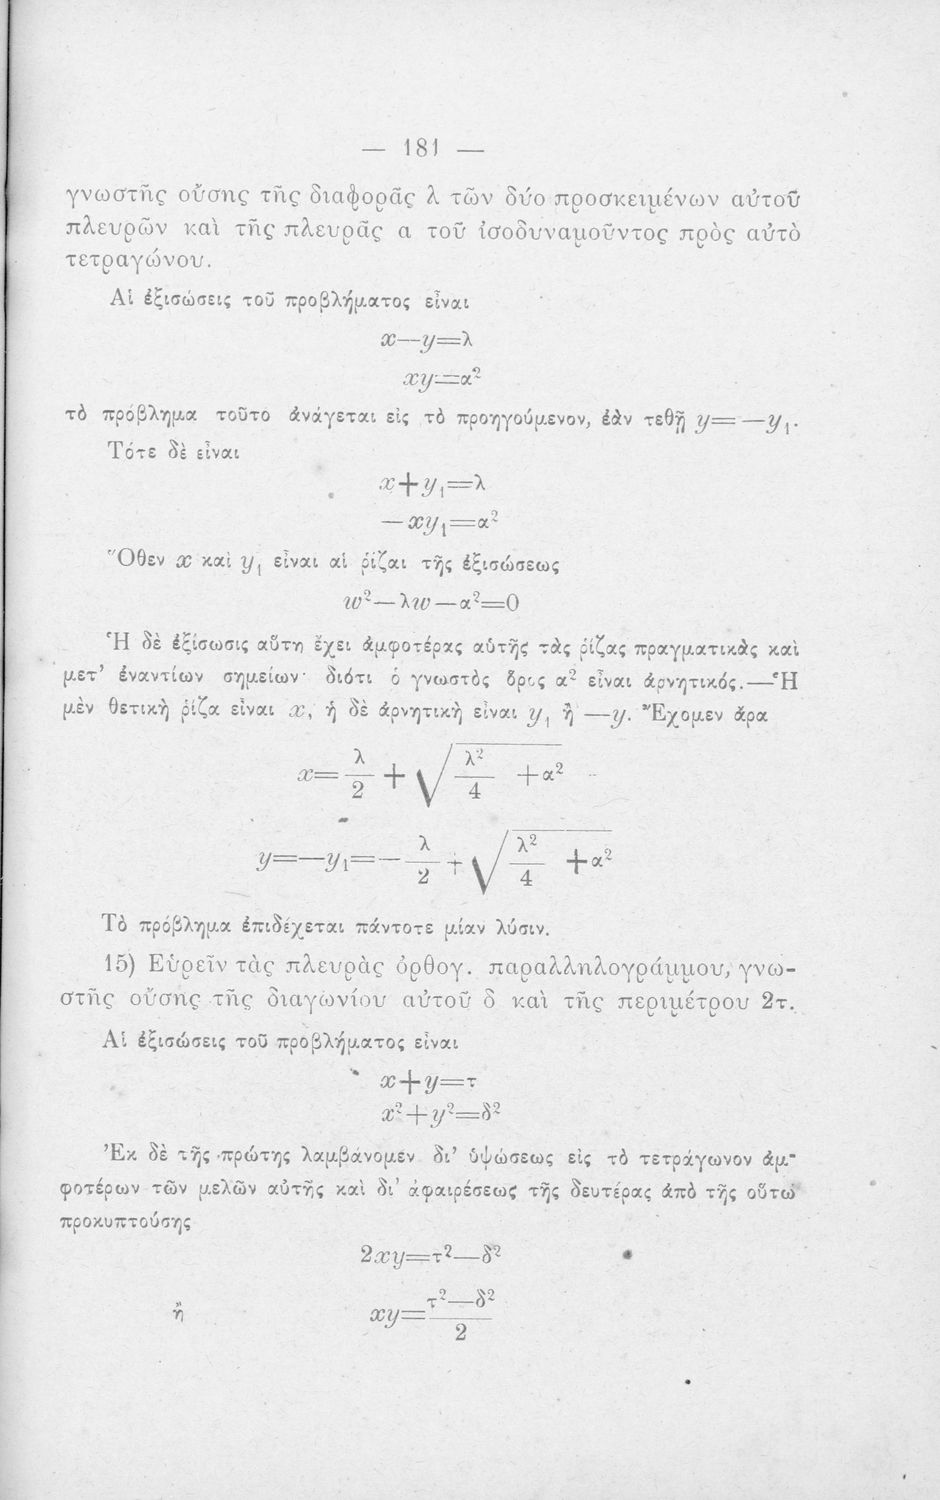 — 181 —
γνωστῆς οὔσης τῆς διαφορᾶς λ τῶν δύο προσκειμένων αὐτοῦ
πλευρῶν καὶ τῆς πλευρᾶς α τοῦ ἰσοδυναμοῦντος πρὸς αὐτὸ
τετραγώνου.
Αἱ ἐξισώσεις τοῦ προβλήματος εἶναι
x—y=λ
xy=α²
τὸ πρόβλημα τοῦτο ἀνάγεται εἰς τὸ προηγούμενον, ἐὰν τεθῇ y=—y₁.
Τότε δὲ εἶναι
x+y₁=λ
—xy₁=α²
Ὅθεν x καὶ y₁ εἶναι αἱ ῥίζαι τῆς ἐξισώσεως
w²—λw—α²=0
Ἡ δὲ ἐξίσωσις αὕτη ἔχει ἀμφοτέρας αὐτῆς τὰς ῥίζας πραγματικὰς καὶ
μετ’ ἐναντίων σημείων· διότι ὁ γνωστὸς ὅρος α² εἶναι ἀρνητικός.—Ἡ
μὲν θετικὴ ῥίζα εἶναι x, ἡ δὲ ἀρνητικὴ εἶναι y₁ ἢ —y. Ἔχομεν ἄρα
x= λ/2 + √(λ²/4 +α²)
y=—y₁=— λ/2 + √(λ²/4 +α²)
Τὸ πρόβλημα ἐπιδέχεται πάντοτε μίαν λύσιν.
15) Εὑρεῖν τὰς πλευρὰς ὀρθογ. παραλληλογράμμου, γνω-
στῆς οὔσης τῆς διαγωνίου αὐτοῦ δ καὶ τῆς περιμέτρου 2τ.
Αἱ ἐξισώσεις τοῦ προβλήματος εἶναι
x+y=τ
x²+y²=δ²
Ἐκ δὲ τῆς πρώτης λαμβάνομεν δι’ ὑψώσεως εἰς τὸ τετράγωνον ἀμ-
φοτέρων τῶν μελῶν αὐτῆς καὶ δι’ ἀφαιρέσεως τῆς δευτέρας ἀπὸ τῆς οὕτω
προκυπτούσης
2xy=τ²—δ²
ἢ xy= (τ²—δ²)/2